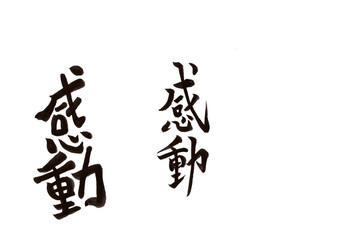 感動
感動